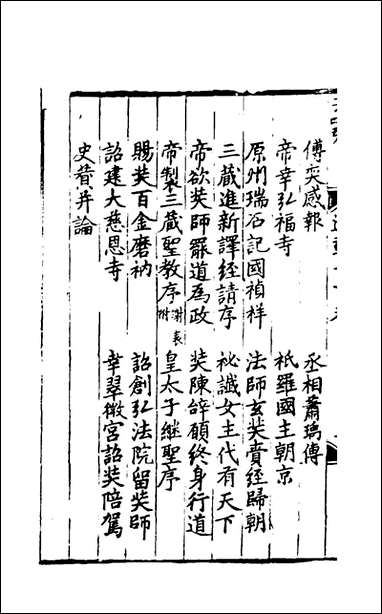 傅奕感報 丞相蕭瑀傳
帝幸弘福寺 祇羅國主朝京
原州瑞石記國禎祥 法師玄奘賷經歸朝
三藏進新譯經請序 祕讖女主代有天下
帝欲奘師罷道為政 奘陳辝願終身行道
帝製三藏聖教序謝表附 皇太子継聖序
賜奘百金磨衲 詔創弘法院留奘師
詔建大慈恩寺 幸翠微宮詔奘陪駕
史贊并論